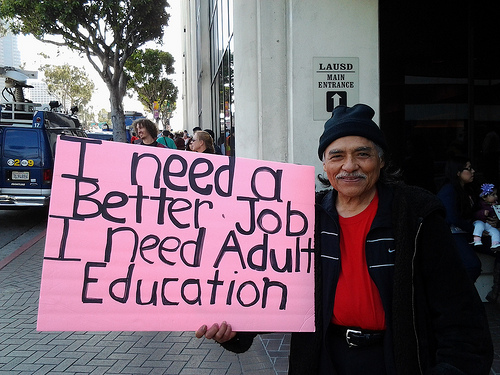 LAUSD
MAIN
ENTRANCE
I need a
Better Job
I need Adult
Education